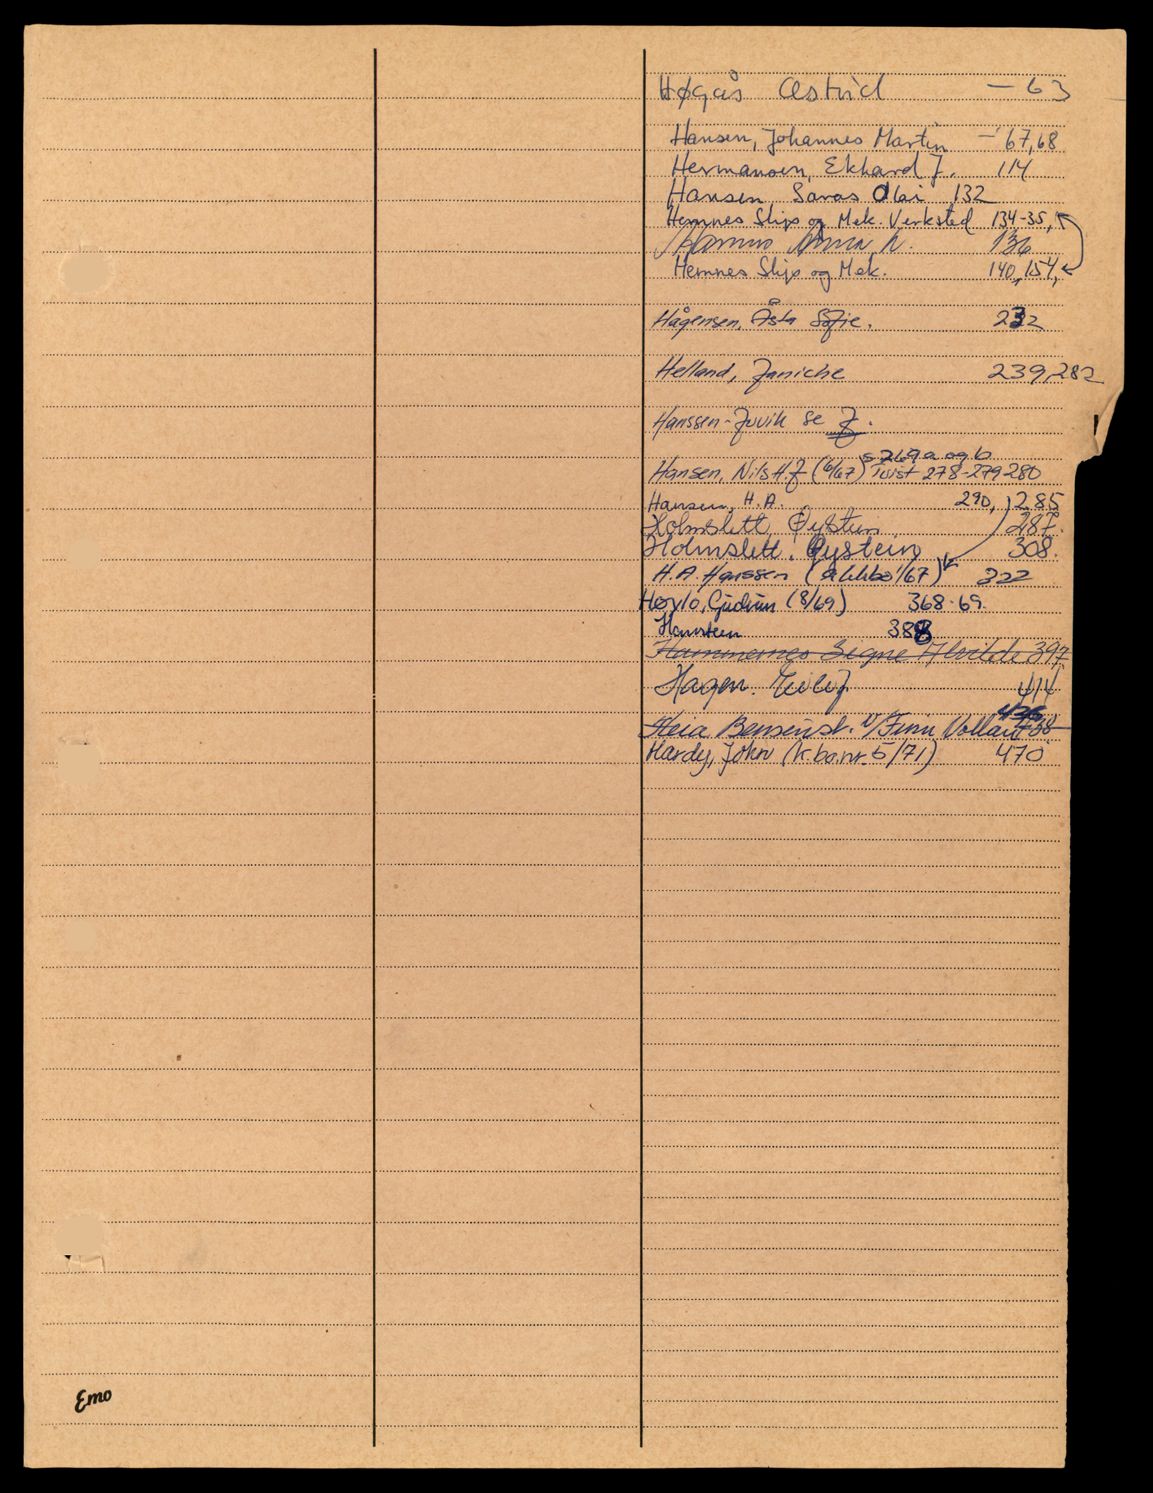 Høgås Astrid — 63
Hansen, Johannes Martin — 67,68
Hermansen, Ekhard J. 114
Hansen Savas Olai 132
Hemnes Slip og Mek. Verksted 134-35,
136
Hemnes Slip og Mek. 140, 154,
Hågensen, Åsta Sofie. 232
Helland, Janiche 239,282
Hanssen-Juvik se J.
s 269 a og b
Hansen, Nils H.J (6/67) Tvist 278-279 280
Hansen, H.A. 290, 285
Holmslett, Øystein 287.
Holmslett, Øystein 308.
H.A. Hanssen (akkbo 1/67) 322
Høylo, Gudrun (8/69) 368-69.
Hansteen 388
Hammernes Signe Alvilde 397
Hagen. 414
436
Heia Bensinst. v/Finn Vollan 438
Hardy, John (k.bo.nr. 5/71) 470
Emo